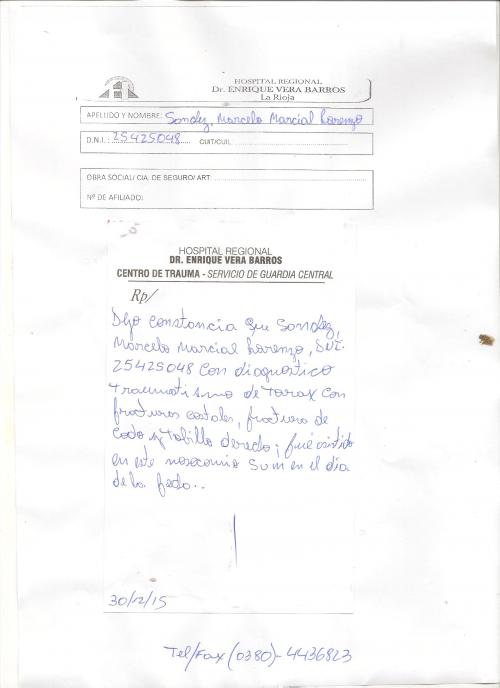 HOSPITAL REGIONAL
Dr. ENRIQUE VERA BARROS
La Rioja
APELLIDO Y NOMBRE: Sandez, Marcelo Marcial Lorenzo
D.N.I.: 25425048 CUIT/CUIL:
OBRA SOCIAL/ CIA. DE SEGURO/ ART:
Nº DE AFILIADO:
HOSPITAL REGIONAL
DR. ENRIQUE VERA BARROS
CENTRO DE TRAUMA - SERVICIO DE GUARDIA CENTRAL
Rp/
Dejo constancia que Sandez,
Marcelo Marcial Lorenzo, DNI.
25425048 con diagnostico
Traumatismo de Torax con
fracturas costales, fractura de
codo y Tobillo derecho; fué asistido
en este nosocomio en el día
de la fecha..
30/12/15
Tel/Fax (0380)-4436823